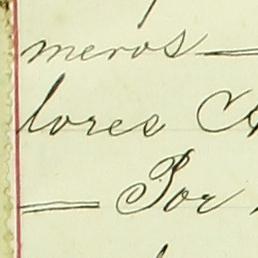 meros —
lores
— Por